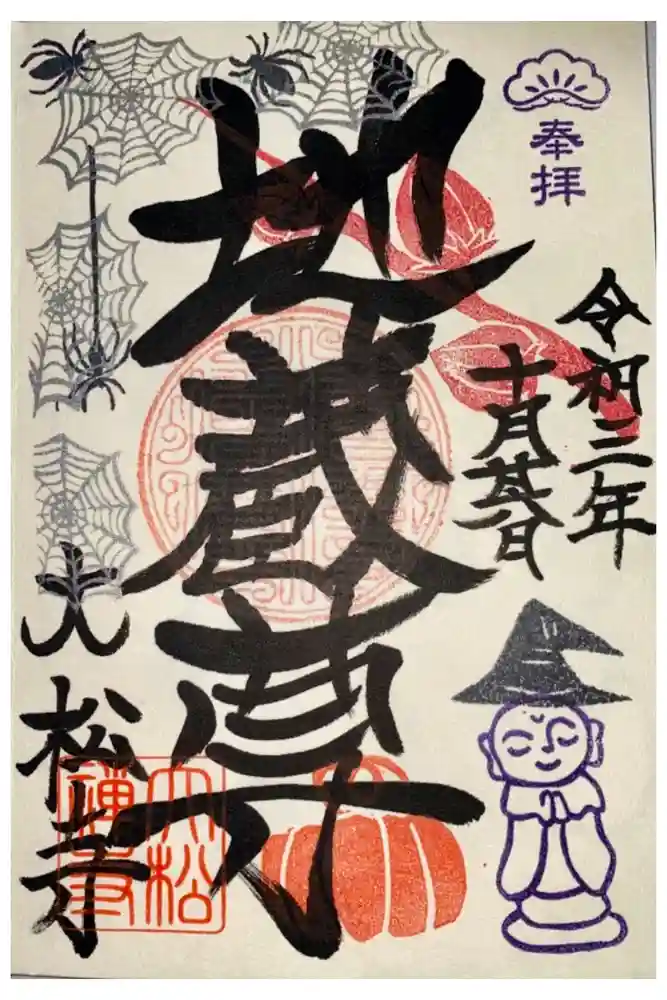 奉拝
令和三年
十月
地蔵尊
大松寺
大松
禅寺